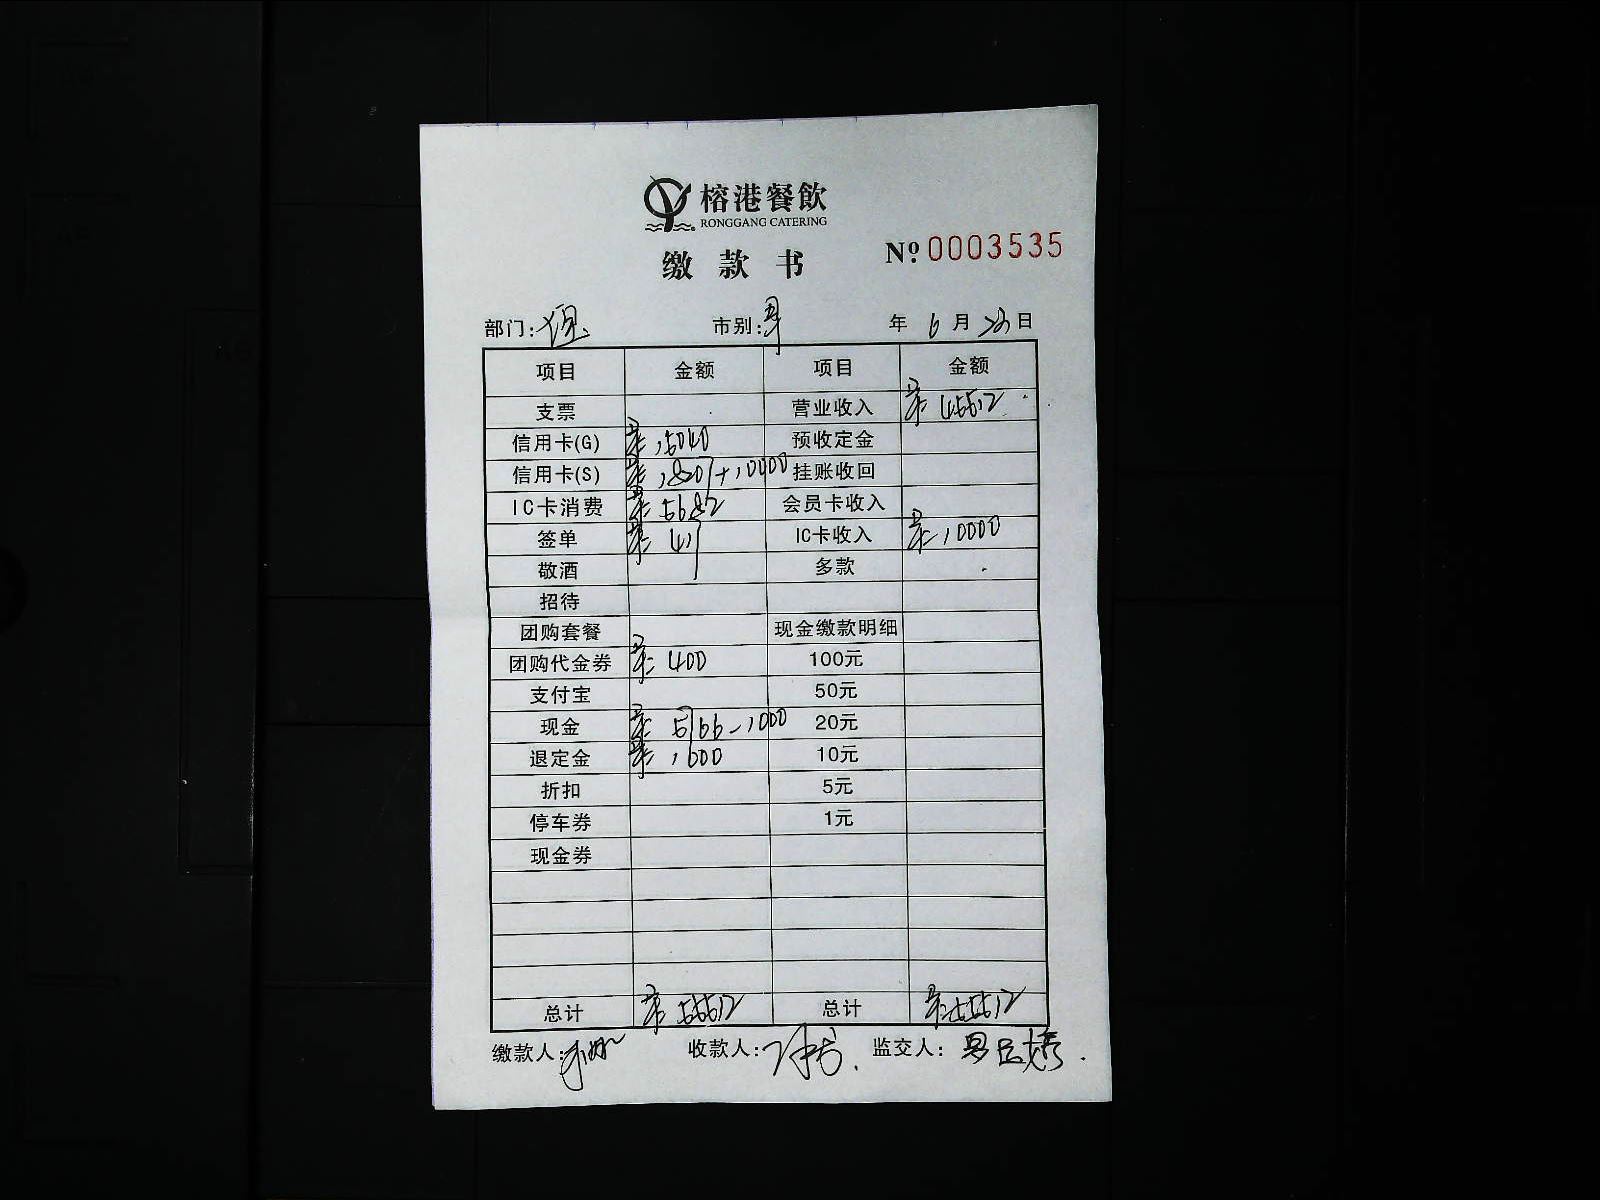 榕港餐飲
RONGGANG CATERING
缴款书 №0003535
部门: 市别: 年 6月 日
项目 金额 项目 金额
支票 营业收入 45512
信用卡(G) 15040 预收定金
信用卡(S) +10400 挂账收回
IC卡消费 5682 会员卡收入
签单 417 IC卡收入 10000
敬酒 多款
招待
团购套餐 现金缴款明细
团购代金券 400 100元
支付宝 50元
现金 5766-1000 20元
退定金 1000 10元
折扣 5元
停车券 1元
现金券
总计 55512 总计 55512
缴款人: 收款人: 监交人: